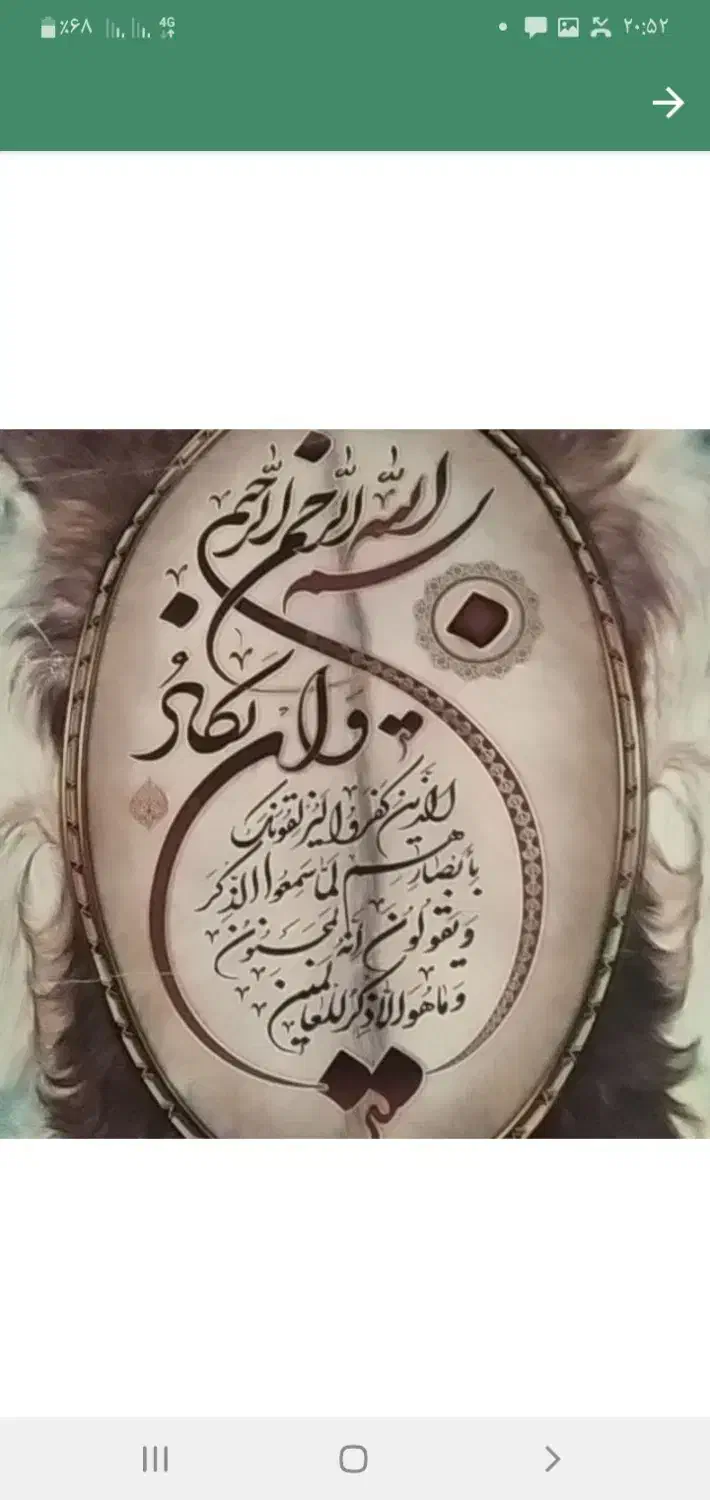 ٪۶۸ 4G ۲۰:۵۲
بسم الله الرحمن الرحیم
وان یکاد
الذین کفروا لیزلقونک
بأبصارهم لما سمعوا الذکر
ویقولون انه لمجنون
وما هو الا ذکر للعالمین